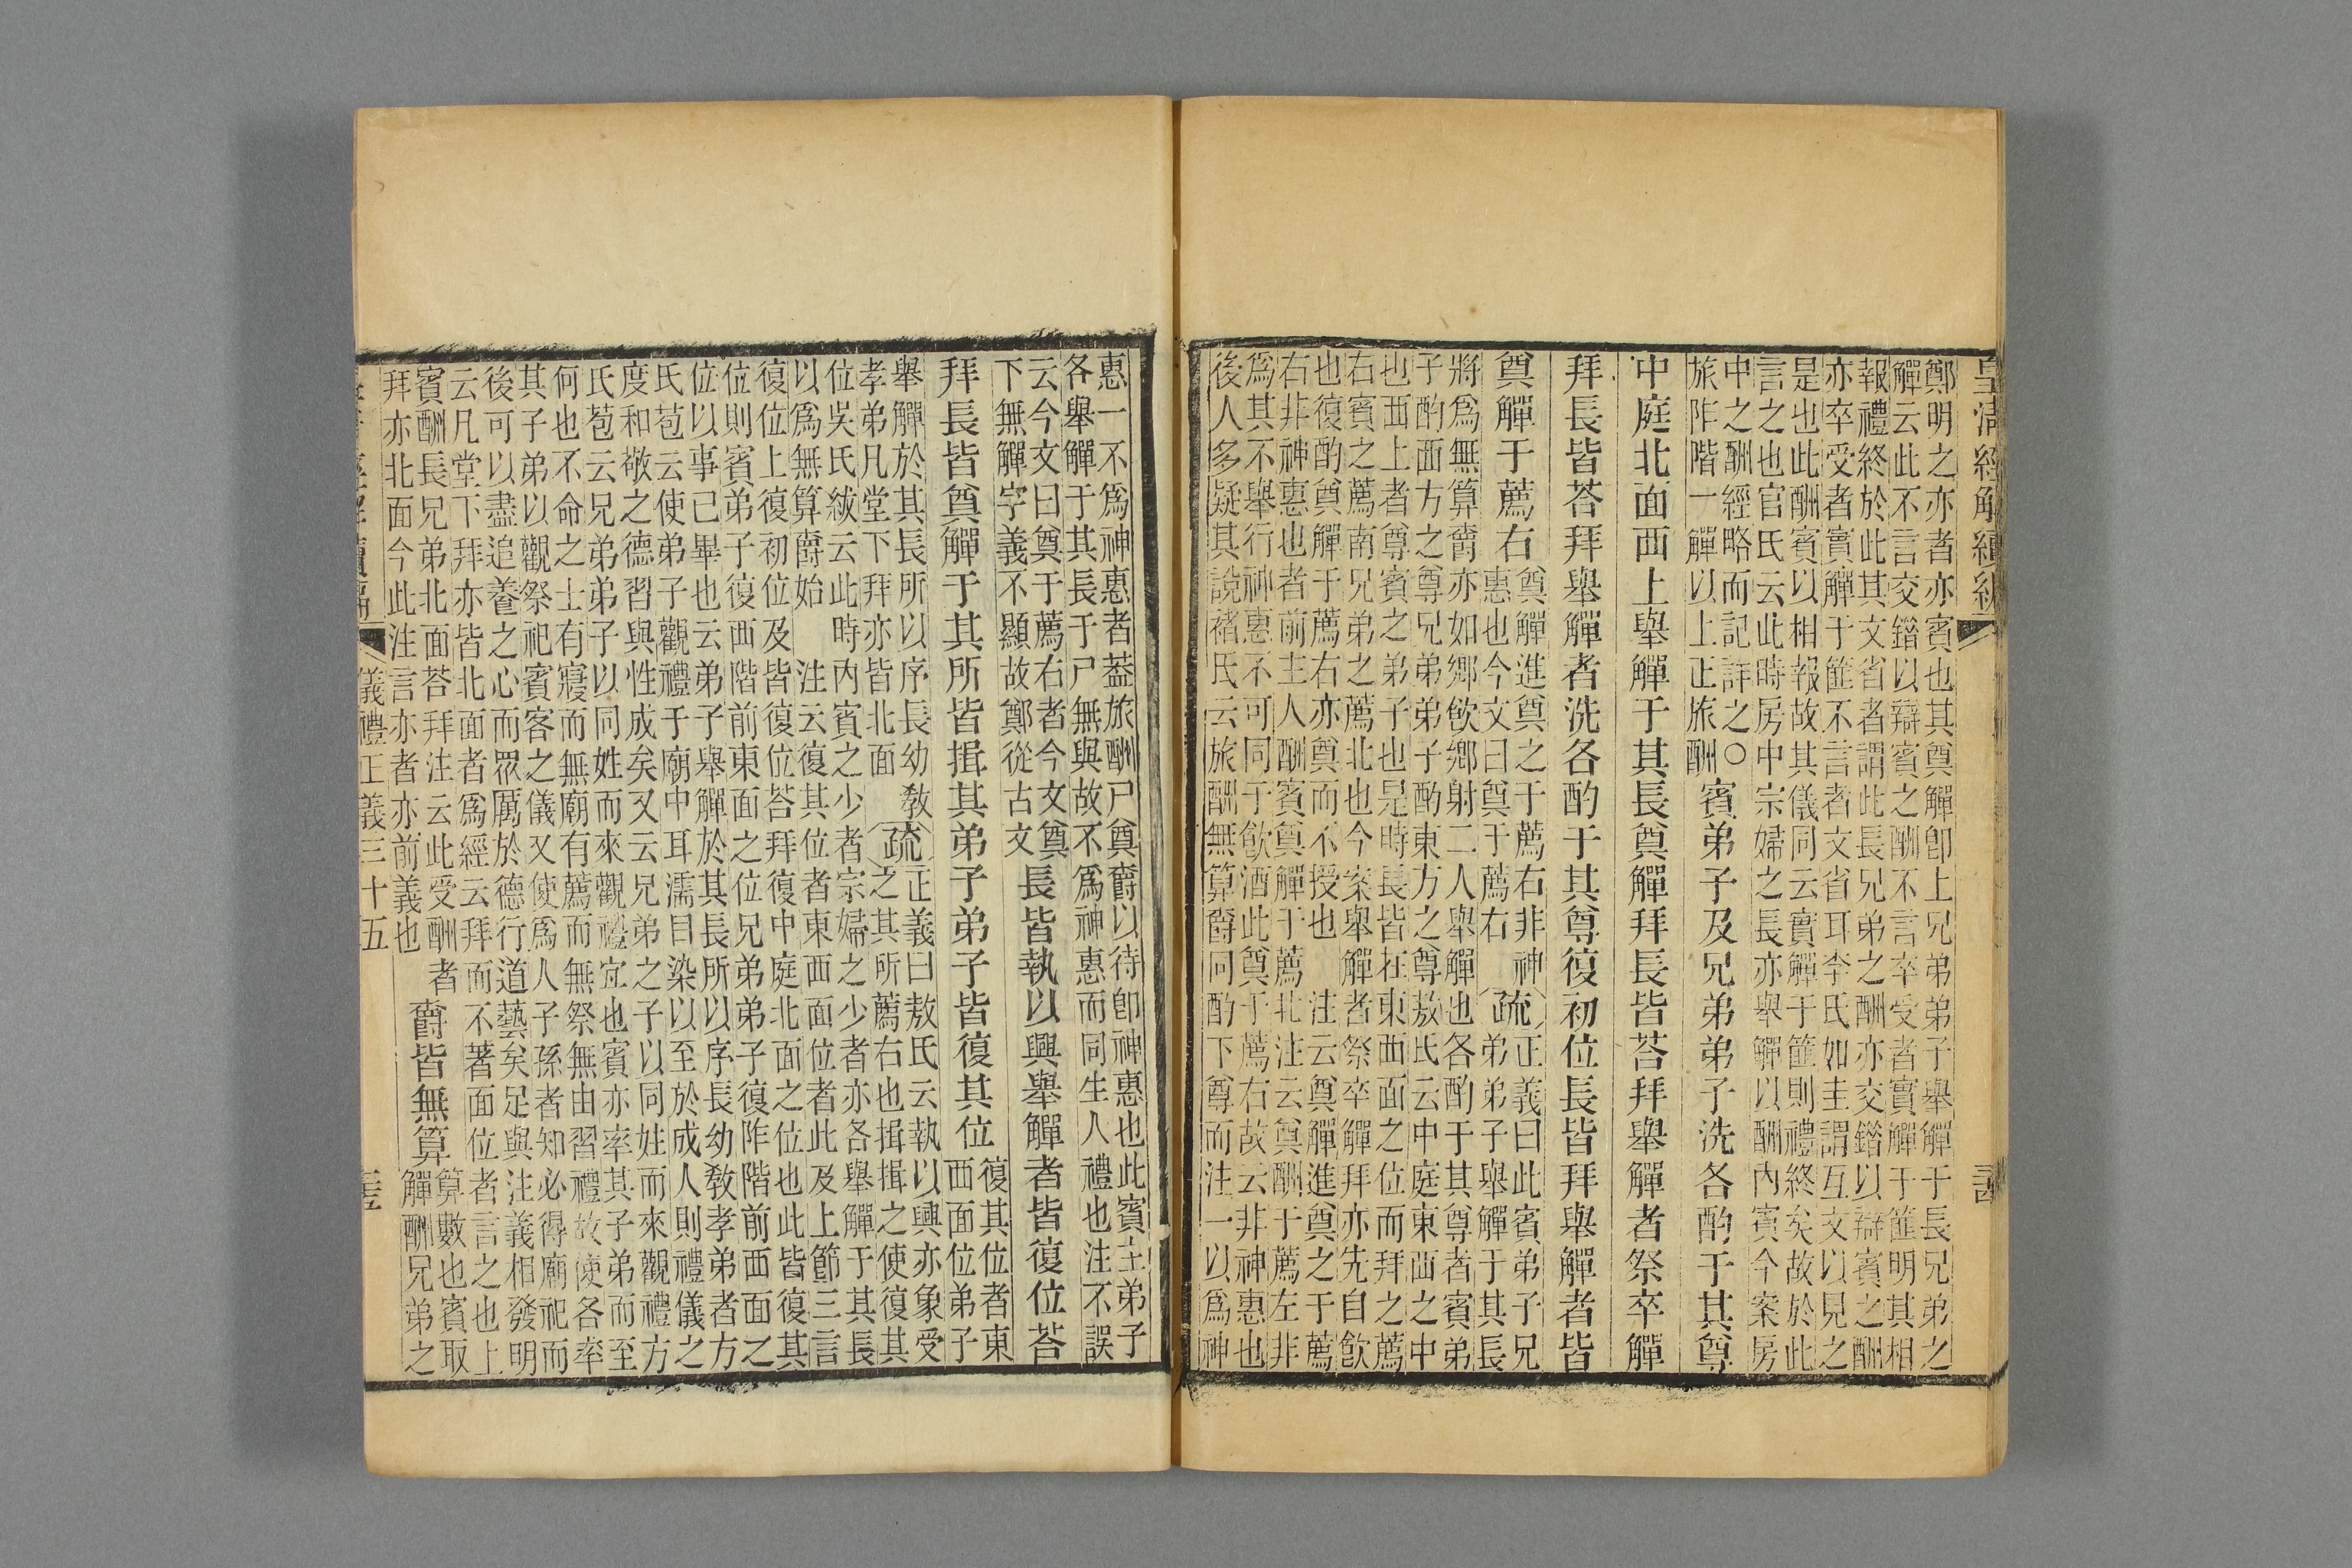 皇清經解續編
鄭明之亦者亦賓也其奠觶卽上兄弟弟子舉觶于長兄弟之
觶云此不言交錯以辯賓之酬不言卒受者實觶于篚明其相
報禮終於此其文省者謂此長兄弟之酬亦交錯以辯賓之酬
亦卒受者實觶于篚不言者文省耳李氏如圭謂互文以見之
是也此酬賓以相報故其儀同云實觶于篚則禮終矣故於此
言之也官氏云此時房中宗婦之長亦舉觶以酬內賓今案房
中之酬經略而記詳之〇
旅阼階一觶以上正旅酬
賓弟子及兄弟弟子洗各酌于其尊
中庭北面西上舉觶于其長奠觶拜長皆荅拜舉觶者祭卒觶
拜長皆荅拜舉觶者洗各酌于其尊復初位長皆拜舉觶者皆
奠觶于薦右
奠觶進奠之于薦右非神
惠也今文曰奠于薦右
疏
正義曰此賓弟子兄
弟弟子舉觶于其長
將爲無算爵亦如鄉飮鄉射二人舉觶也各酌于其尊者賓弟
子酌西方之尊兄弟弟子酌東方之尊敖氏云中庭東西之中
也西上者尊賓之弟子也是時長皆在東西面之位而拜之薦
右賓之薦南兄弟之薦北也今案舉觶者祭卒觶拜亦先自飮
也復酌奠觶于薦右亦奠而不授也　注云奠觶進奠之于薦
右非神惠也者前主人酬賓奠觶于薦北注云奠酬于薦左非
爲其不舉行神惠不可同于飮酒此奠于薦右故云非神惠也
後人多疑其說褚氏云旅酬無算爵同酌下尊而注一以爲神
惠一不爲神惠者葢旅酬尸奠爵以待卽神惠也此賓主弟子
各舉觶于其長于尸無與故不爲神惠而同生人禮也注不誤
云今文曰奠于薦右者今文奠
下無觶字義不顯故鄭從古文
長皆執以興舉觶者皆復位荅
拜長皆奠觶于其所皆揖其弟子弟子皆復其位
復其位者東
西面位弟子
舉觶於其長所以序長幼教
孝弟凡堂下拜亦皆北面
疏
正義曰敖氏云執以興亦象受
之其所薦右也揖揖之使復其
位吳氏紱云此時內賓之少者宗婦之少者亦各舉觶于其長
以爲無算爵始　注云復其位者東西面位者此及上節三言
復位上復初位及皆復位荅拜復中庭北面之位也此皆復其
位則賓弟子復西階前東面之位兄弟弟子復阼階前西面之
位以事已畢也云弟子舉觶於其長所以序長幼敎孝弟者方
氏苞云使弟子觀禮于廟中耳濡目染以至於成人則禮儀之
度和敬之德習與性成矣又云兄弟之子以同姓而來觀禮方
氏苞云兄弟弟子以同姓而來觀禮宜也賓亦率其子弟而至
何也不命之士有寢而無廟有薦而無祭無由習禮故使各率
其子弟以觀祭祀賓客之儀又使爲人子孫者知必得廟祀而
後可以盡追養之心而眾厲於德行道藝矣足與注義相發明
云凡堂下拜亦皆北面者爲經云拜而不著面位者言之也上
賓酬長兄弟北面荅拜注云此受酬者
拜亦北面今此注言亦者亦前義也
爵皆無算
算數也賓取
觶酬兄弟之
儀禮正義三十五